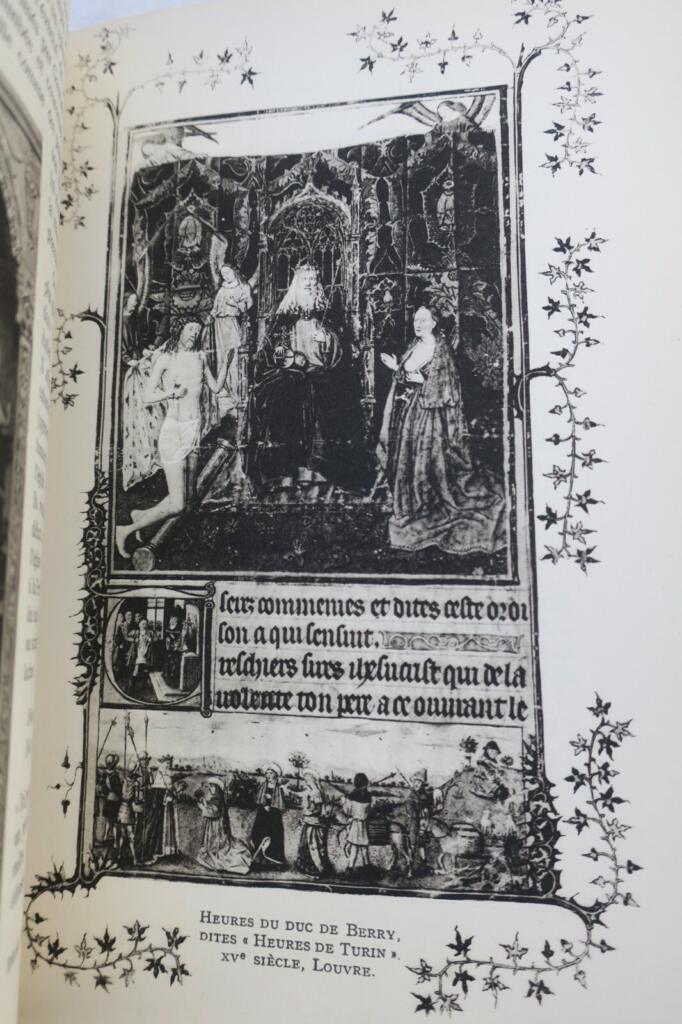 seurs commemes et dites ceste ordi
son a qui sensuit.
reschiers sires ihesucrist qui de la
volente ton pere a ce ouvrant le
HEURES DU DUC DE BERRY,
DITES « HEURES DE TURIN ».
XVe SIÈCLE, LOUVRE.